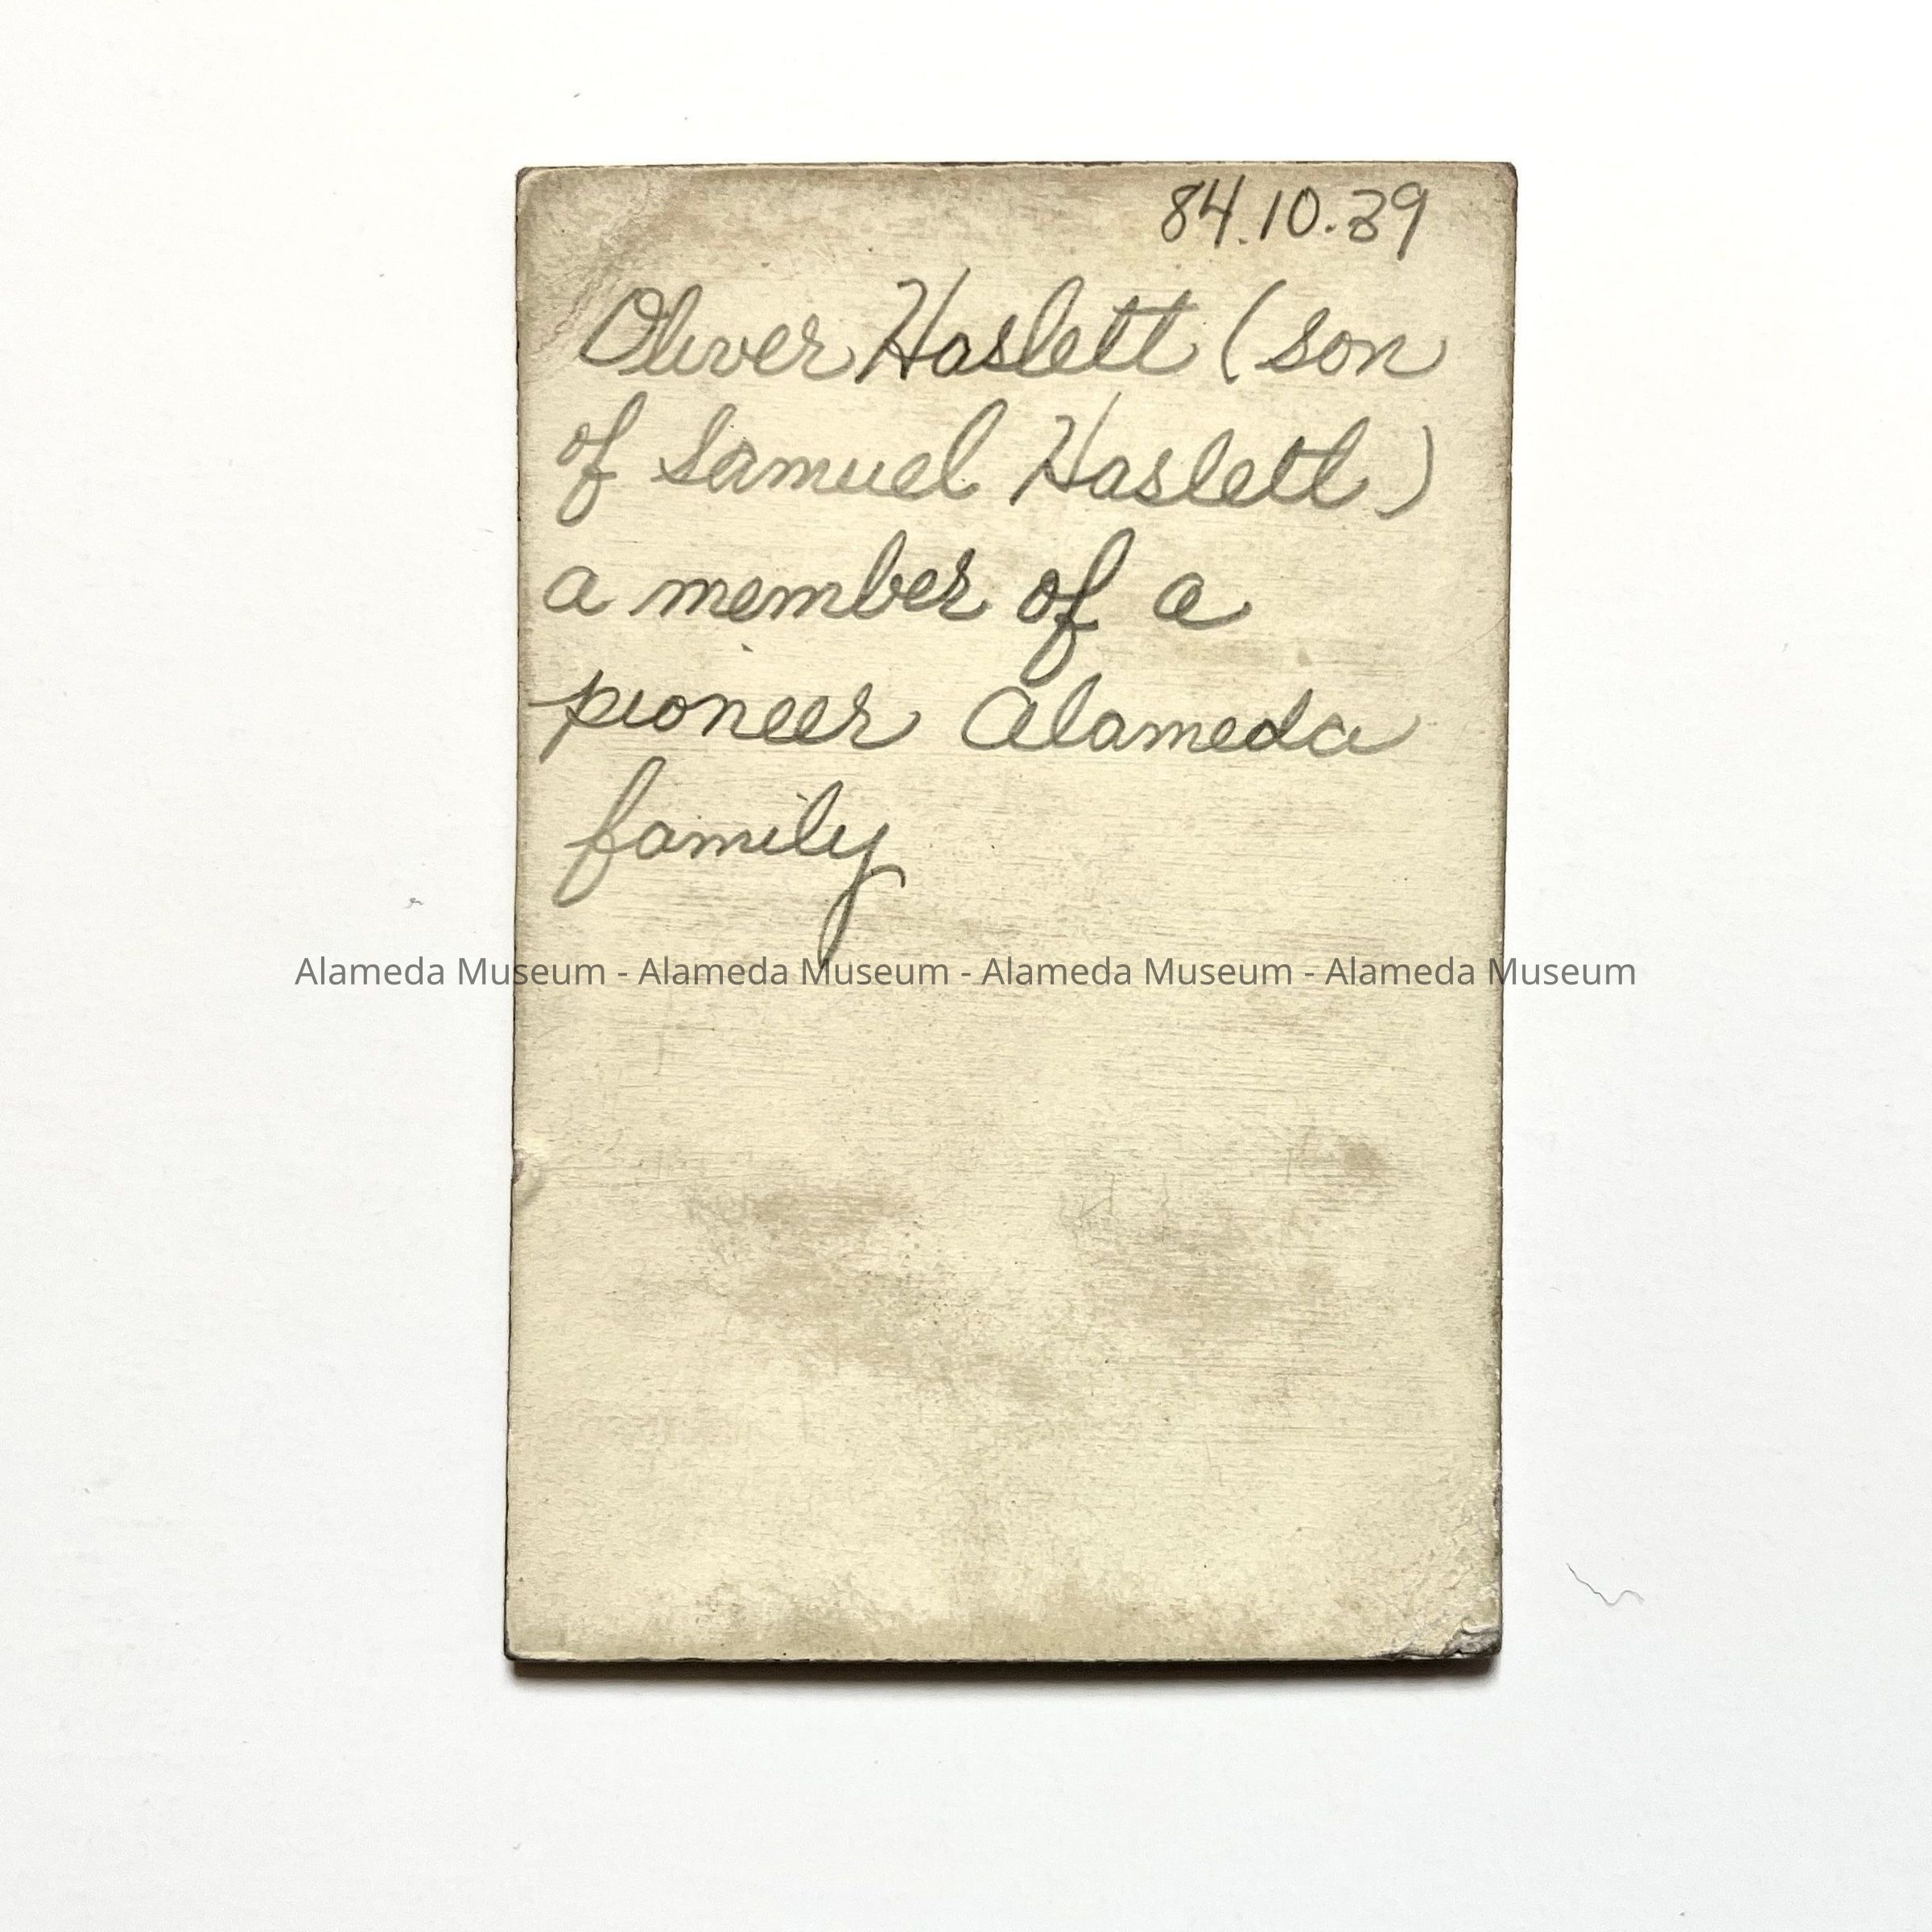 84.10.39
Oliver Haslett (son
of Samuel Haslett)
a member of a
pioneer Alameda
family
Alameda Museum - Alameda Museum - Alameda Museum - Alameda Museum